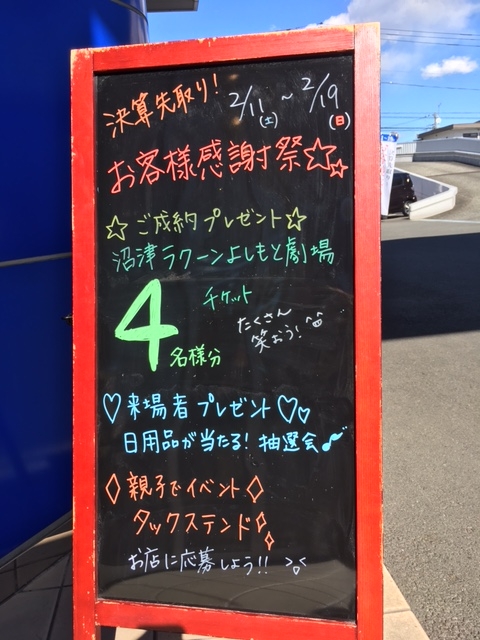 決算先取り! 2/11(土)~2/19(日)
お客様感謝祭☆☆
☆ご成約プレゼント☆
沼津ラクーンよしもと劇場
チケット
4名様分
たくさん
笑おう!
♡来場者プレゼント♡♡
日用品が当たる!抽選会♪
◇親子でイベント◇
タックステンド
お店に応募しよう!!